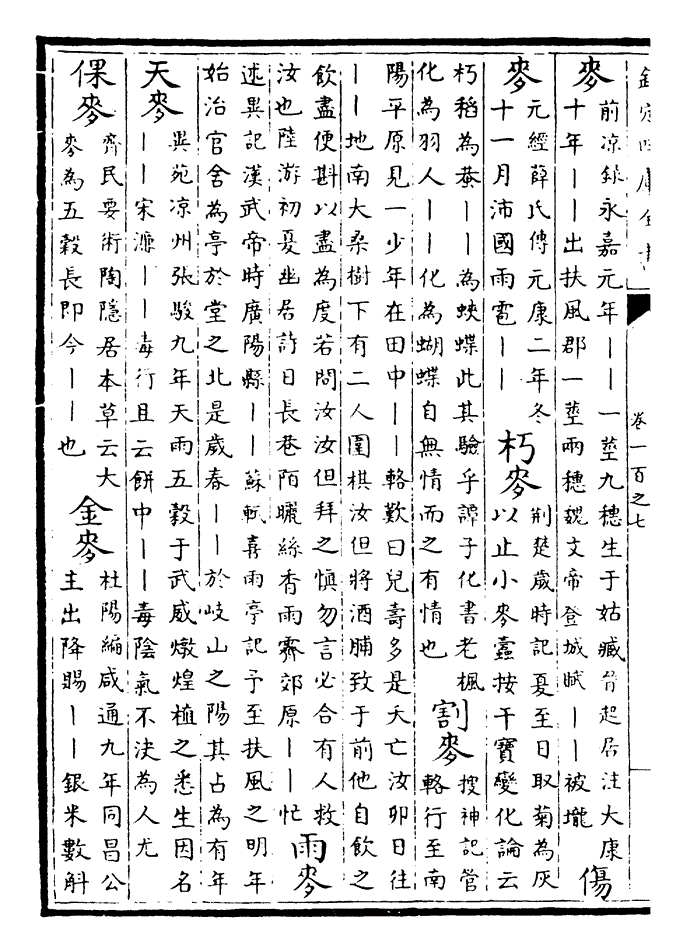 欽定四庫全書
卷一百之七
麥
前涼錄永嘉元年丨丨一莖九穗生于姑臧晉起居注大康
十年丨丨出扶風郡一莖兩穗魏文帝登城賦丨丨被壠
傷
麥
元經薛氏傳元康二年冬
十一月沛國雨雹丨丨
朽麥
荆楚歲時記夏至日取菊為灰
以止小麥蠹按干寶變化論云
朽稻為蛬丨丨為蛺蝶此其驗乎譚子化書老楓
化為羽人丨丨化為蝴蝶自無情而之有情也
割麥
搜神記管
輅行至南
陽平原見一少年在田中丨丨輅歎曰兒壽多是夭亡汝卯日往
丨丨地南大桑樹下有二人圍棋汝但將酒脯致于前他自飲之
飲盡便斟以盡為度若問汝汝但拜之慎勿言必合有人救
汝也陸游初夏幽居詩日長巷陌曬絲香雨霽郊原丨丨忙
雨麥
述異記漢武帝時廣陽縣丨丨蘇軾喜雨亭記予至扶風之明年
始治官舍為亭於堂之北是歲春丨丨於岐山之陽其占為有年
天麥
異苑涼州張駿九年天雨五穀于武威燉煌植之悉生因名
丨丨宋濂丨丨毒行且云餅中丨丨毒陰氣不決為人尤
倮麥
齊民要術陶隱居本草云大
麥為五穀長即今丨丨也
金麥
杜陽編咸通九年同昌公
主出降賜丨丨銀米數斛